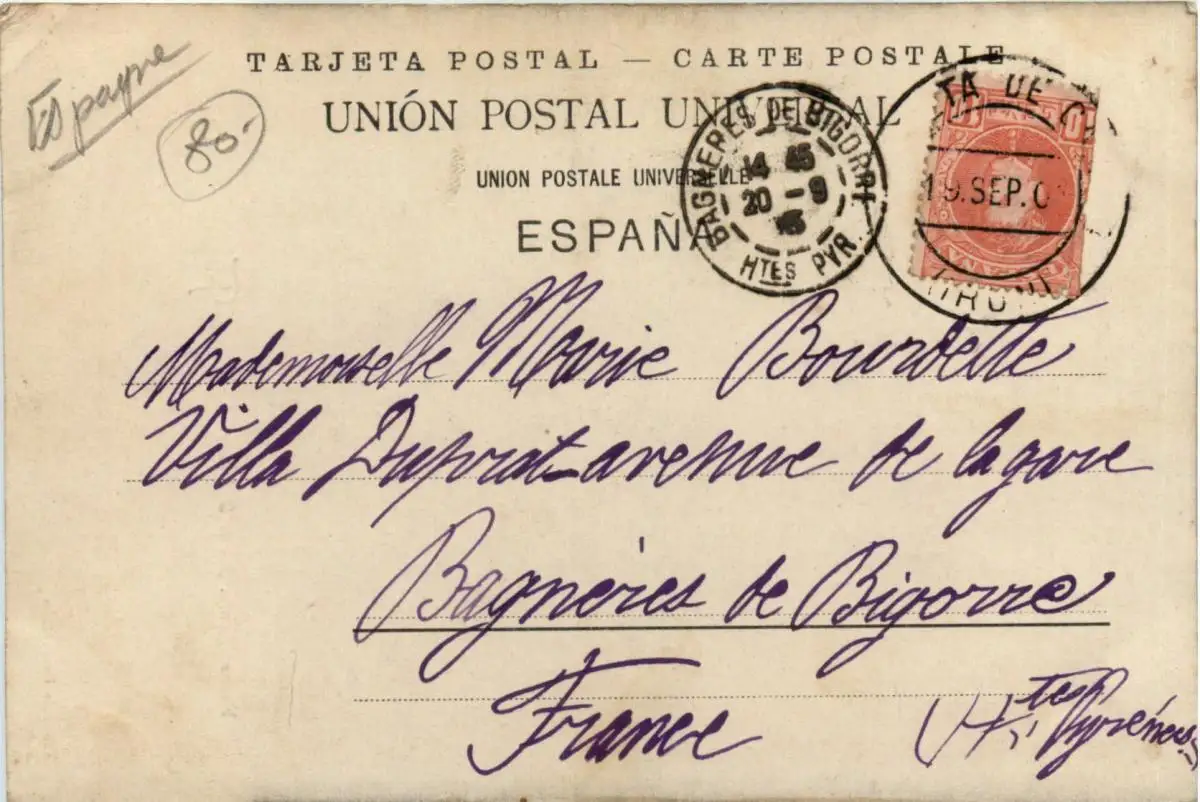 Espagne
80.-
TARJETA POSTAL — CARTE POSTALE
UNIÓN POSTAL UNIVERSAL
UNION POSTALE UNIVERSELLE
ESPAÑA
BAGNERES DE BIGORRE
14 45
20 - 9
HTES PYR.
TA DE
19.SEP.0
Mademoiselle Marie Bourdette
Villa Duprat - avenue de la gare
Bagnères de Bigorre
France
(Htes Pyrénées)